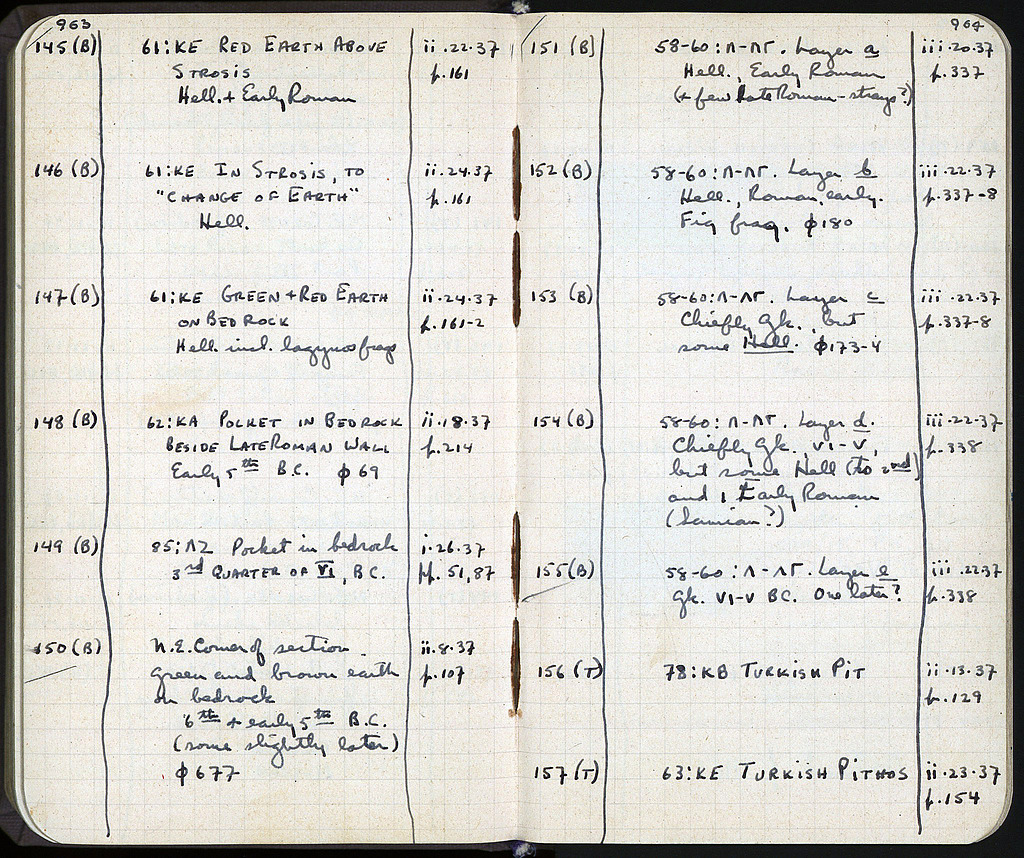 963
145 (B) 61:KE RED EARTH ABOVE ii.22.37
STROSIS p.161
Hell. + Early Roman
146 (B) 61:KE IN STROSIS, TO ii.24.37
"CHANGE OF EARTH" p.161
Hell.
147 (B) 61:KE GREEN + RED EARTH ii.24.37
ON BEDROCK p.161-2
Hell. incl. lagynos frag
148 (B) 62:KA POCKET IN BEDROCK ii.18.37
BESIDE LATE ROMAN WALL p.214
Early 5th B.C. φ 69
149 (B) 85:ΛΖ Pocket in bedrock i.26.37
3rd QUARTER OF VI, B.C. pp. 51,87
150 (B) N.E. Corner of section. ii.8.37
Green and brown earth p.107
on bedrock
6th + early 5th B.C.
(some slightly later)
φ677
964
151 (B) 58-60:Λ-ΛΓ. Layer a iii.20.37
Hell., Early Roman p.337
(+ few Late Roman - strays?)
152 (B) 58-60:Λ-ΛΓ. Layer b iii.22.37
Hell., Roman, early. p.337-8
Fig frag. φ180
153 (B) 58-60:Λ-ΛΓ. Layer c iii.22.37
Chiefly Gk., but p.337-8
some Hell. φ173-4
154 (B) 58-60:Λ-ΛΓ. Layer d. iii.22.37
Chiefly Gk., VI-V, p.338
but some Hell (to 2nd)
and 1 Early Roman
(Samian?)
155 (B) 58-60:Λ-ΛΓ. Layer e iii.22.37
Gk. VI-V BC. One later? p.338
156 (T) 78:KB TURKISH PIT ii.13.37
p.129
157 (T) 63:KE TURKISH PITHOS ii.23.37
p.154